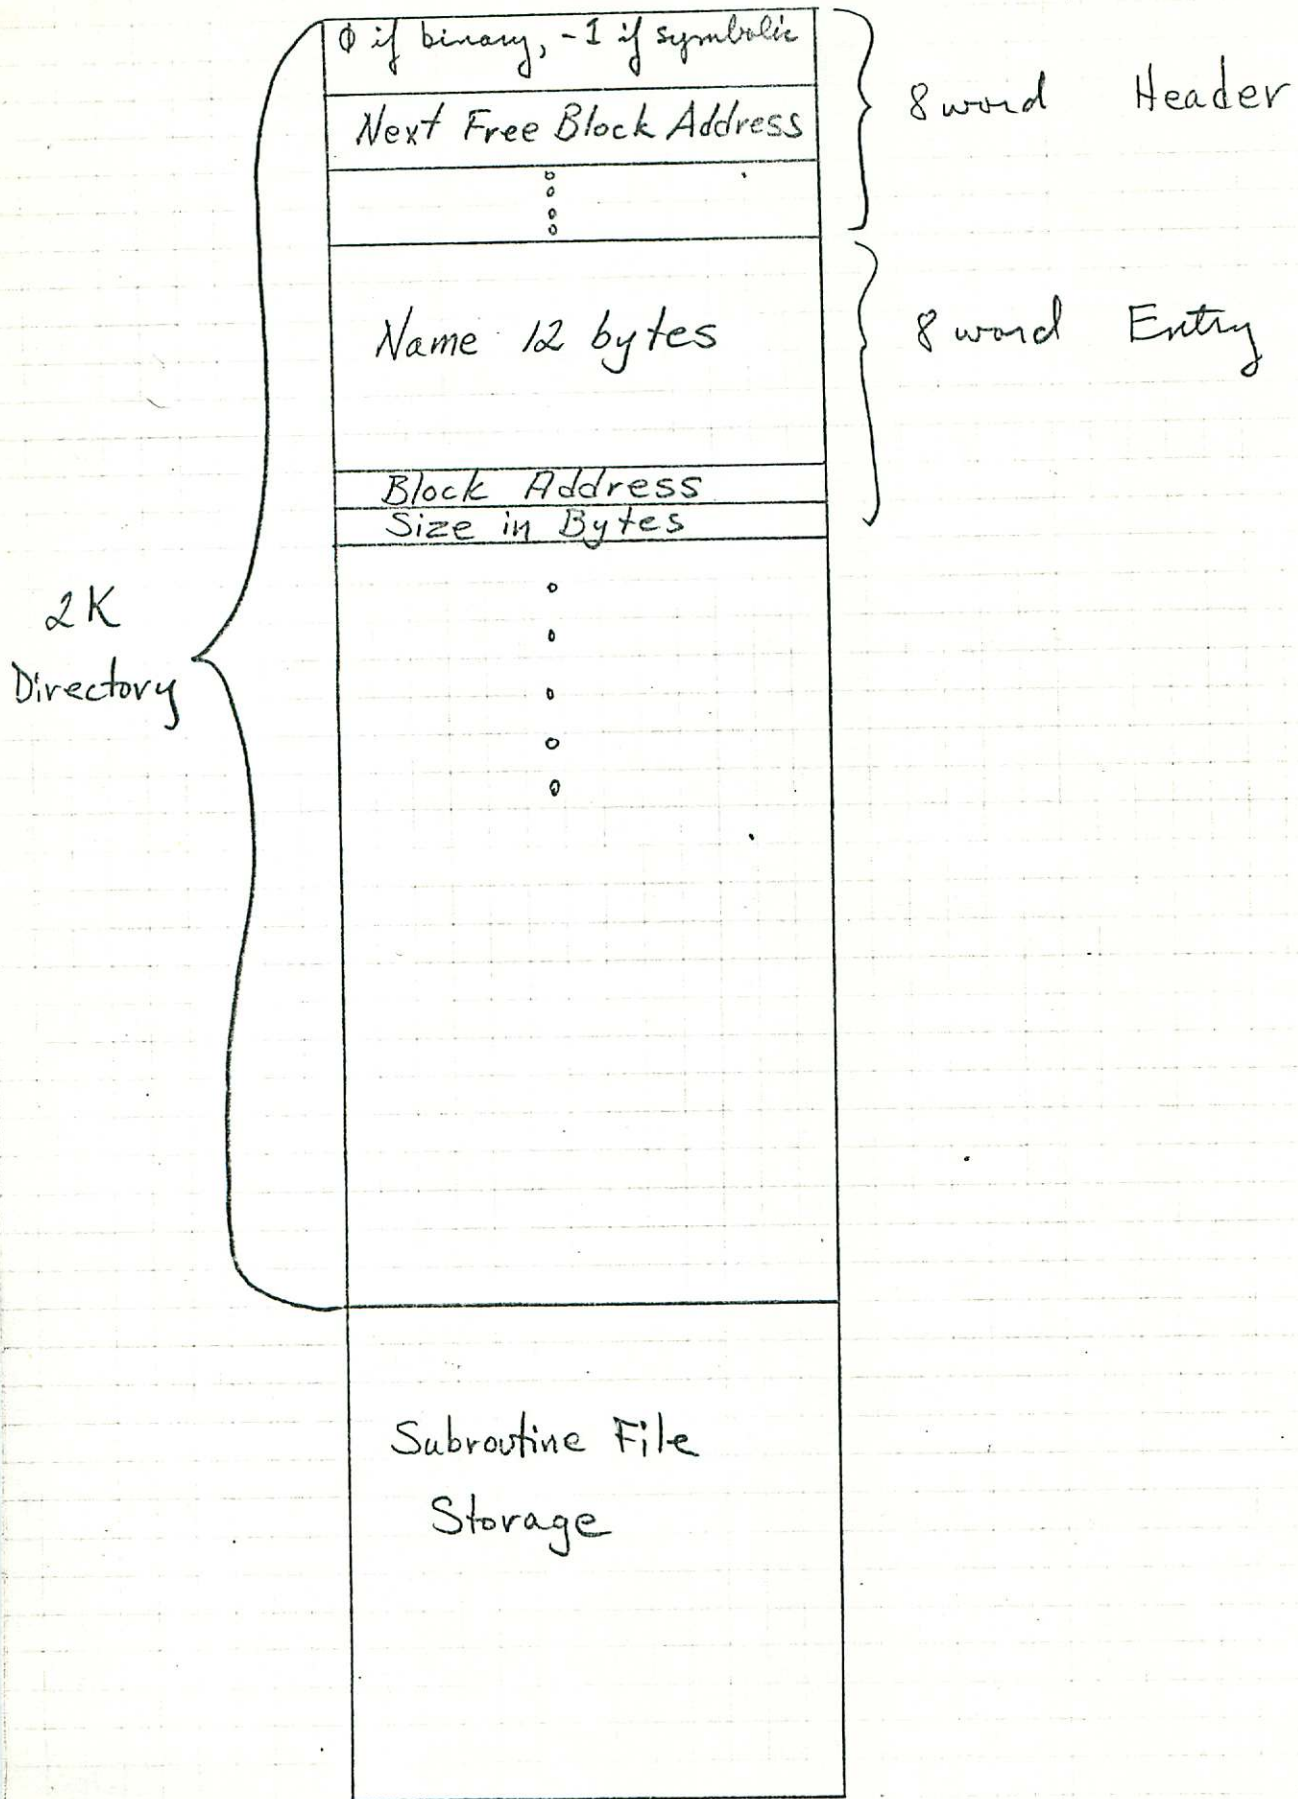 0 if binary, -1 if symbolic
8 word Header
Next Free Block Address
Name 12 bytes
8 word Entry
Block Address
Size in Bytes
2K
Directory
Subroutine File
Storage